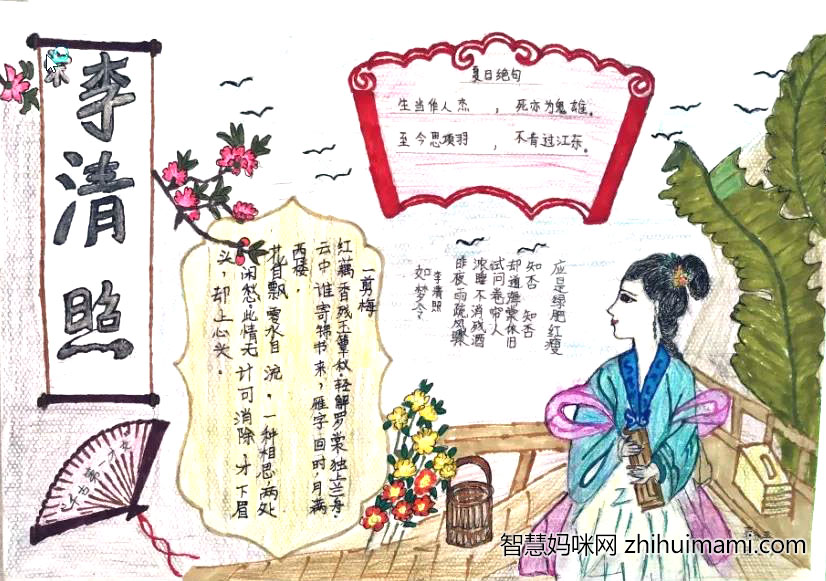 李清照
夏日绝句
生当作人杰，死亦为鬼雄。
至今思项羽，不肯过江东。
一剪梅
红藕香残玉簟秋。轻解罗裳独上兰舟。
云中谁寄锦书来，雁字回时，月满
西楼，
花自飘零水自流，一种相思，两处
闲愁。此情无计可消除，才下眉
头，却上心头。
如梦令
李清照
昨夜雨疏风骤
浓睡不消残酒
试问卷帘人
却道海棠依旧
知否 知否
应是绿肥红瘦
千古第一才女
智慧妈咪网 zhihuimami.com